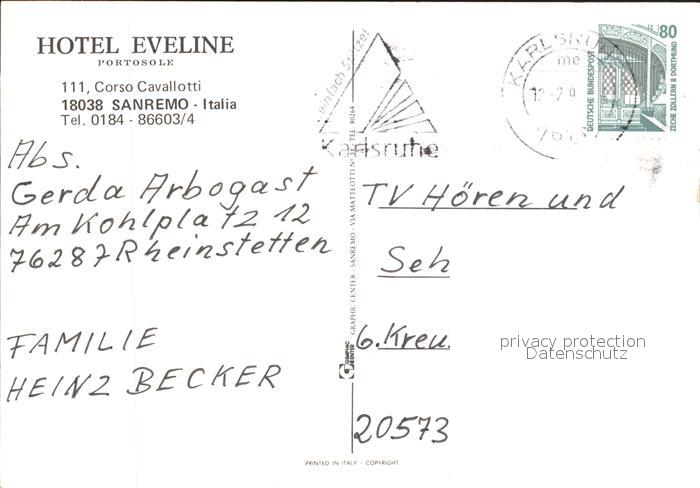 HOTEL EVELINE
PORTOSOLE
111, Corso Cavallotti
18038 SANREMO - Italia
Tel. 0184 - 86603/4
Abs.
Gerda Arbogast
Am Kohlplatz 12
76287 Rheinstetten
FAMILIE
HEINZ BECKER
einfach Spitze!
Karlsruhe
KARLSRUHE
80
DEUTSCHE BUNDESPOST
ZECHE ZOLLERN II DORTMUND
GRAPHIC CENTER - SANREMO - VIA MATTEOTTI
TEL. 80264
GRAPHIC CENTER
TV Hören und
Seh
6. Kreu.
20573
privacy protection
Datenschutz
PRINTED IN ITALY - COPYRIGHT